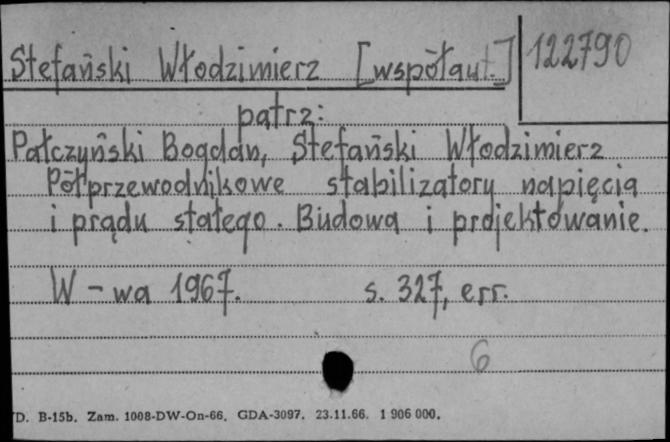 Stefański Włodzimierz [współaut.] 122790
patrz:
Pałczyński Bogdan, Stefański Włodzimierz
Półprzewodnikowe stabilizatory napięcia
i prądu stałego. Budowa i projektowanie.
W-wa 1967. s. 327, err.
6
D. B-15b. Zam. 1008-DW-On-66. GDA-3097. 23.11.66. 1 906 000.